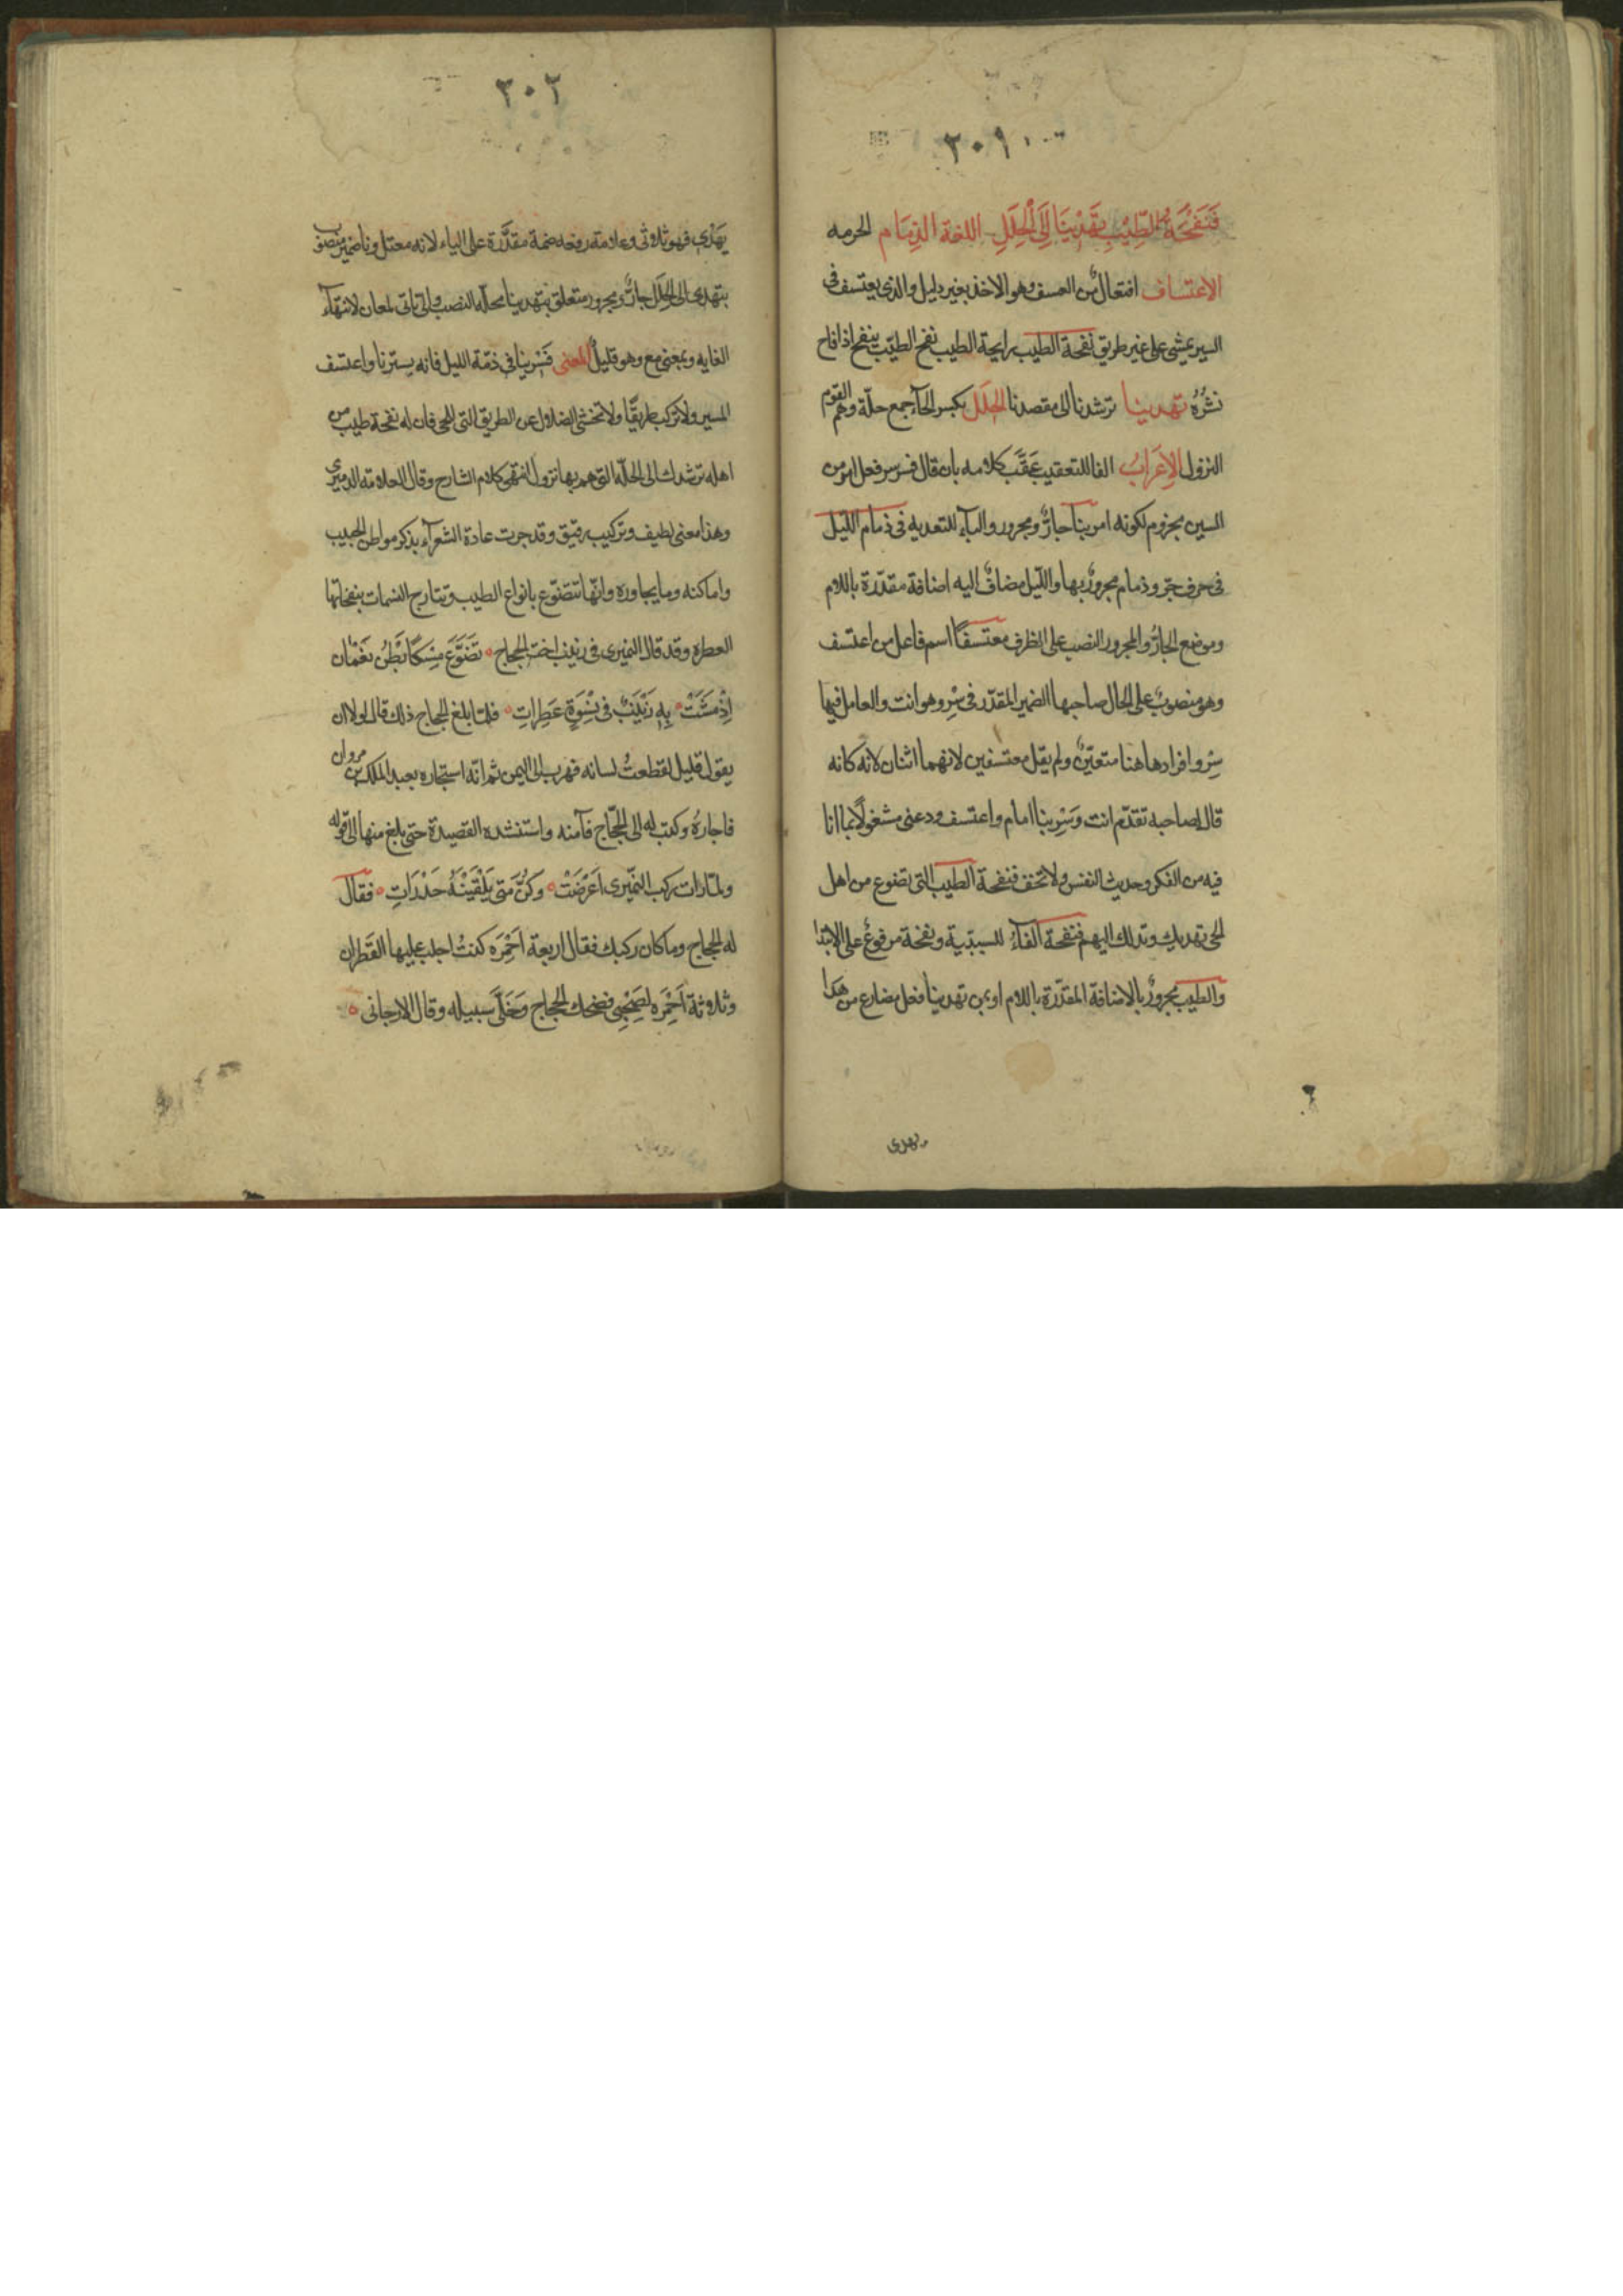 ٣٠١
فَنَفْحَةُ الطِّيْبِ تَهْدِيْنَا إِلَى الْحِلَلِ اللغة الذِمَام الحرمه
الاعتساف افتعالٌ من العسف وهو الاخذ بغير دليل والذى يعتسف فى
السير يمشى على غير طريق نفحة الطيب رايحة الطيب نفح الطيّب ينفح اذا فاح
نشْرُهُ تهدينا ترشدنا الى مقصدنا الحِلَل بكسر الحآء جمع حلّة وهم القوم
النزول الاِعَرابُ الفا للتعقيب عَقَّبَ كلامه بان قال فسر سر فعل امر من
السير مجزوم لكونه امر بنا جارٌّ ومجرور والبآء للتعديه فى ذمام الليّل
فى حرف جرّ وذمام مجرورٌ بها والليّل مضافٌ اليه اضافة مقدّرة باللام
وموضع الجارُّ والمجرور النصب على الظرف معتسفًا اسم فاعل من اعتسف
وهو منصوبٌ على الحال صاحبها الضمير المقدّر فى سِرْ وهو انت والعامل فيها
سِرْ وافرادها هنا متعيّنٌ ولم يقل معتسفين لانهما اثنان لانه كانه
قال لصاحبه تقدّم انت وَسِرْ بنا امام واعتسف ودعنى مشغولًا بما انا
فيه من الفكر وحديث النفس ولا تخف فنفحة الطيب التى تضوع من اهل
الحى تهديك وتدلك اليهم فنفحة الفآءُ للسببّية ونفحة مرفوعٌ على الابتدا
والطيب مجرورٌ بالاضافة المقدّرة باللام او بمن تهدينا فعل مضارع من هَدَا
يهدى
٣٠٢
يَهْدِى فهو ثلاثى وعلامة رفعه ضمة مقدَّرة على الياء لانه معتل ونا ضمير منصوب
بتهدى الى الحِلَل جارٌّ ومجرور متعلق بتهدينا محلّه النصب والى تاتى لمعان لانتهآء
الغايه وبمعنى مع وهو قليلٌ المعنى فَسْر بنا فى ذمّة الليل فانه يسترنا واعتسف
المسير ولا تركب طريقًا ولا تخشى الضلال عن الطريق التى للحى فان له نفحة طيب من
اهله ترشدك الى الحلّه التى هم بها نزول انتهى كلام الشارح وقال العلامة الدميرى
وهذا معنى لطيف وتركيب رقيق وقد جرت عادة الشعرآء بذكر مواطن الحبيب
واماكنه وما يجاوره وانّها تتضوّع بانواع الطيب وتتارج النسمات بنفحاتها
العطره وقد قال النميرى فى زينب اخت الحجاج ° تَضَوَّعَ مِسْكًا بَطْنُ نَعْمَان
اِذْ مَشَتْ ° بِهِ زَيْنَبٌ فى نِسْوَةٍ عَطِراتِ ° فلمّا بلغ الحجاج ذلك قال لولا ان
يقول قليل لقطعتُ لسانه فهرب الى اليمن ثم انّه استجاره بعبد الملك بن مروان
فاجارهُ وكتب له الى الحجّاج فآمنه واستنشده القصيدة حتى بلغ منها الى قوله
ولمّا رات ركب النمّيرى اَعْرَضَتْ ° وكنَّ مَتى يَلْقَيْنَهُ حَذَرَاتِ ° فقال
له الحجاج وما كان ركبك فقال اربعة اَحْمِرَه كنتُ اجلب عليها القَطران
وثلاثة اَحْمِرَه لصَحْبِى فضحك الحجاج وَخَلَّى سبيله وقال الارجانى °